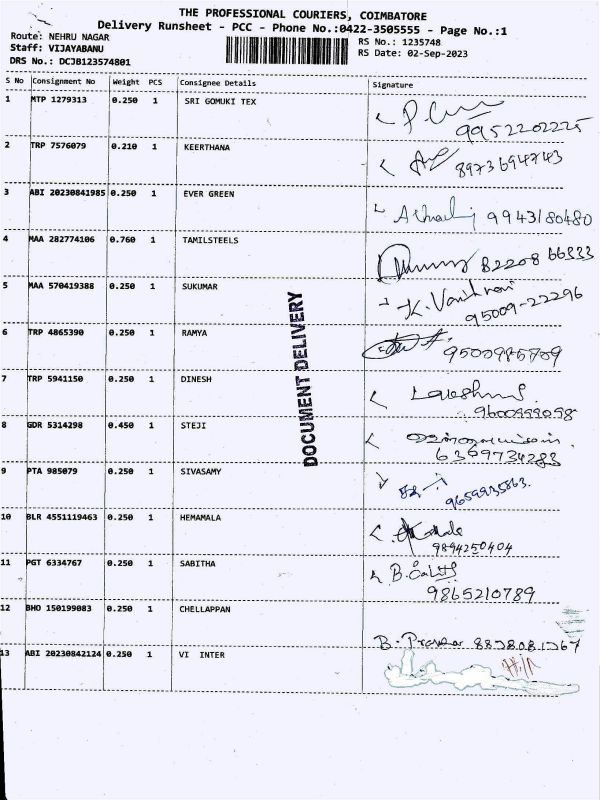 THE PROFESSIONAL COURIERS, COIMBATORE
Delivery Runsheet - PCC - Phone No.:0422-3505555 - Page No.:1
Route: NEHRU NAGAR
RS No.: 1235748
Staff: VIJAYABANU
RS Date: 02-Sep-2023
DRS No.: DCJB123574801
S No Consignment No Weight PCS Consignee Details Signature
1 MTP 1279313 0.250 1 SRI GOMUKI TEX
9952202225
2 TRP 7576079 0.210 1 KEERTHANA
8973694743
3 ABI 20230841985 0.250 1 EVER GREEN
9943180480
4 MAA 282774106 0.760 1 TAMILSTEELS
82208 66333
5 MAA 570419388 0.250 1 SUKUMAR
K. Vanitha
95009-22296
6 TRP 4865390 0.250 1 RAMYA
9500985709
7 TRP 5941150 0.250 1 DINESH
9600999098
8 GDR 5314298 0.450 1 STEJI
6369734283
9 PTA 985079 0.250 1 SIVASAMY
9659935863.
10 BLR 4551119463 0.250 1 HEMAMALA
9894250404
11 PGT 6334767 0.250 1 SABITHA
9865210789
12 BHO 150199083 0.250 1 CHELLAPPAN
13 ABI 20230842124 0.250 1 VI INTER
DOCUMENT DELIVERY